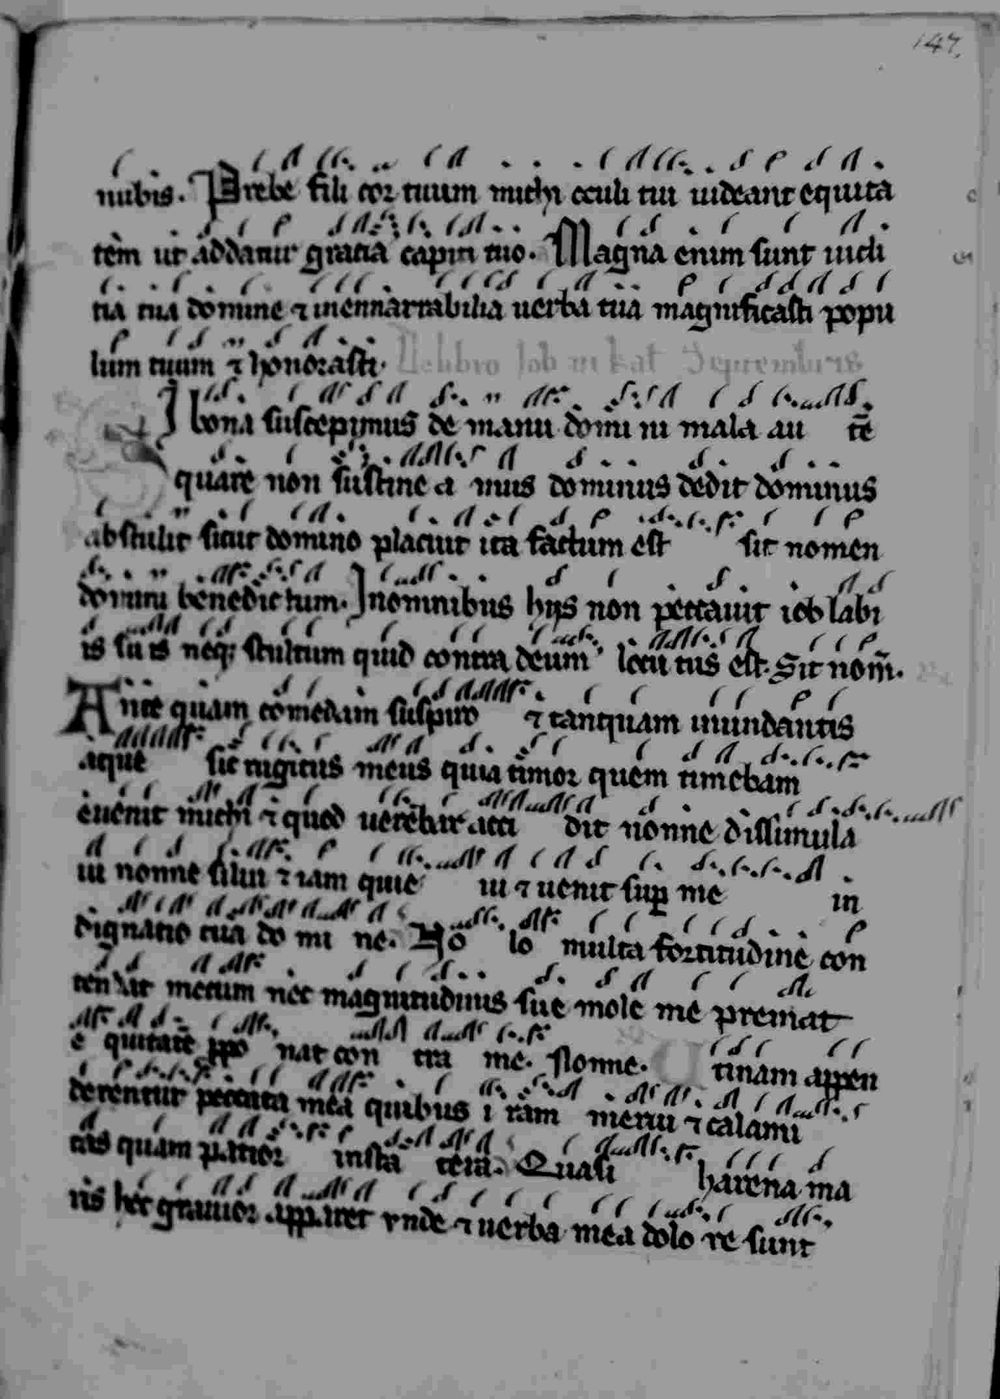 147.
nubis. Prebe fili cor tuum michi oculi tui uideant equita
tem ut addatur gratia capiti tuo. Magna enim sunt iudi
tia tua domine ⁊ inennarrabilia uerba tua magnificasti popu
lum tuum ⁊ honorasti. De libro Iob in kal Septembris
Si bona suscepimus de manu domi ni mala au tē
quare non sustine a mus dominus dedit dominus
abstulit sicut domino placuit ita factum est sit nomen
domini benedictum. In omnibus hijs non peccauit iob labi
is su is neq; stultum quid contra deum locu tus est. Sit nom̄.
Ante quam comedam suspiro ⁊ tanquam inundantis
aque sic rugitus meus quia timor quem timebam
euenit michi ⁊ quod uerebar acci dit nonne dissimula
ui nonne silui ⁊ iam quie ui ⁊ uenit sup me in
dignatio tua do mi ne. No lo multa fortitudine con
tendat mecum nec magnitudinis sue mole me premat
e quitate ppo nat con tra me. Nonne. Utinam appen
derentur peccata mea quibus i ram merui ⁊ calami
tas quam patior in sta tera. Quasi harena ma
ris hec grauior apparet unde ⁊ uerba mea dolo re sunt